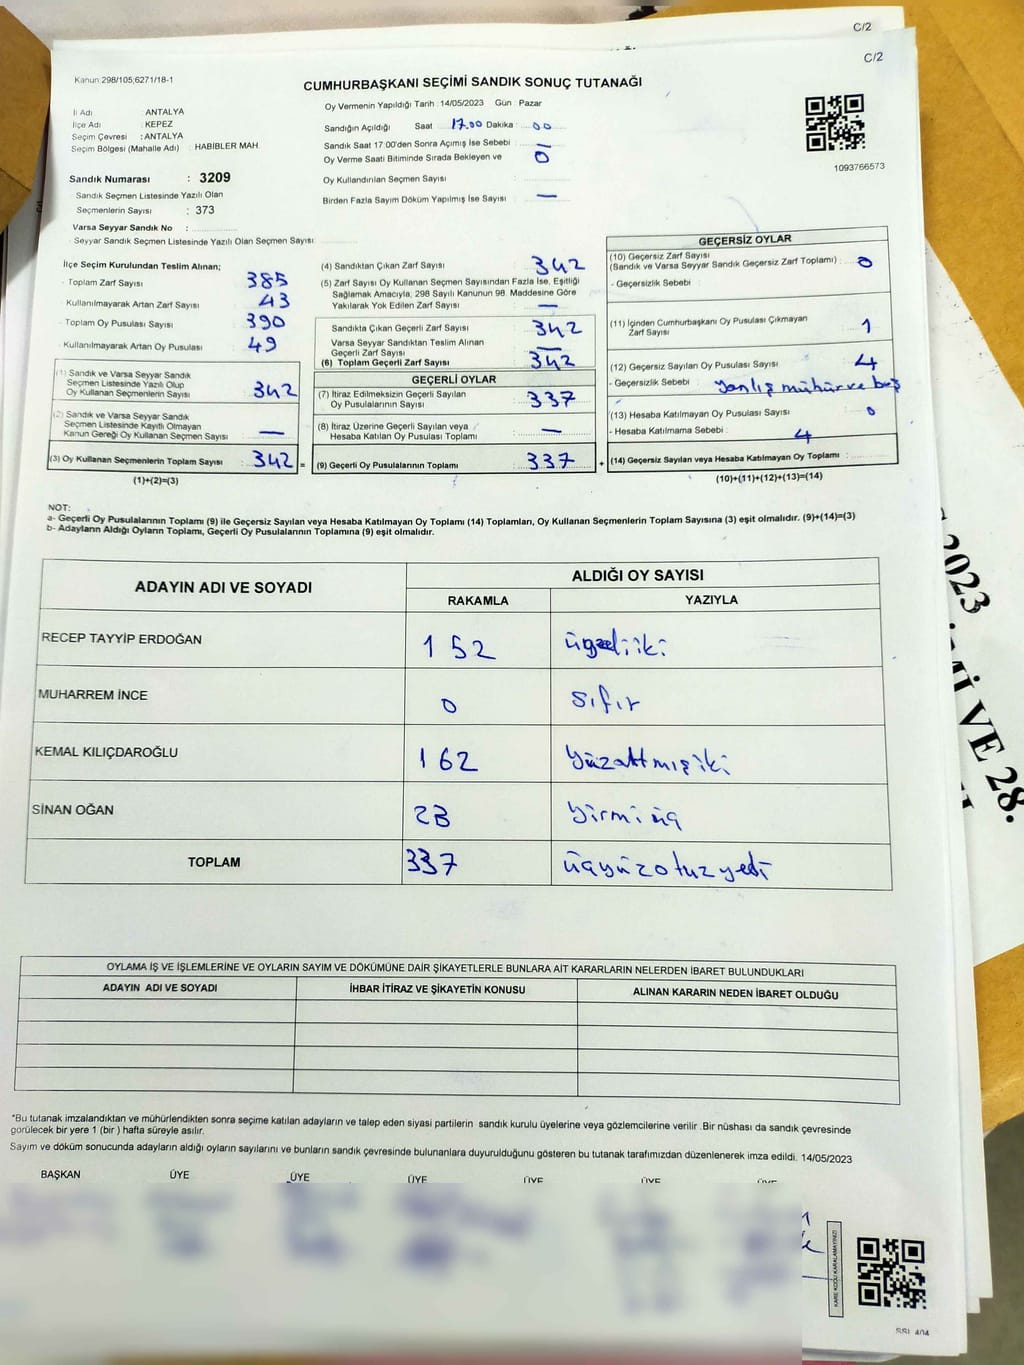 C/2
C/2
Kanun 298/105;6271/18-1
CUMHURBAŞKANI SEÇİMİ SANDIK SONUÇ TUTANAĞI
İl Adı ANTALYA
İlçe Adı : KEPEZ
Seçim Çevresi : ANTALYA
Seçim Bölgesi (Mahalle Adı) : HABİBLER MAH.
Sandık Numarası : 3209
Sandık Seçmen Listesinde Yazılı Olan
Seçmenlerin Sayısı : 373
Varsa Seyyar Sandık No :
Seyyar Sandık Seçmen Listesinde Yazılı Olan Seçmen Sayısı:
Oy Vermenin Yapıldığı Tarih :14/05/2023 Gün : Pazar
Sandığın Açıldığı Saat 17.00 Dakika : 00
Sandık Saat 17:00'den Sonra Açımış İse Sebebi : —
Oy Verme Saati Bitiminde Sırada Bekleyen ve 0
Oy Kullandırılan Seçmen Sayısı :
Birden Fazla Sayım Döküm Yapılmış İse Sayısı : —
1093766573
İlçe Seçim Kurulundan Teslim Alınan;
- Toplam Zarf Sayısı : 385
- Kullanılmayarak Artan Zarf Sayısı : 43
- Toplam Oy Pusulası Sayısı : 390
- Kullanılmayarak Artan Oy Pusulası : 49
(1) Sandık ve Varsa Seyyar Sandık
Seçmen Listesinde Yazılı Olup
Oy Kullanan Seçmenlerin Sayısı : 342
(2) Sandık ve Varsa Seyyar Sandık
Seçmen Listesinde Kayıtlı Olmayan
Kanun Gereği Oy Kullanan Seçmen Sayısı : —
(3) Oy Kullanan Seçmenlerin Toplam Sayısı : 342 =
(1)+(2)=(3)
(4) Sandıktan Çıkan Zarf Sayısı : 342
(5) Zarf Sayısı Oy Kullanan Seçmen Sayısından Fazla İse, Eşitliği
Sağlamak Amacıyla, 298 Sayılı Kanunun 98. Maddesine Göre
Yakılarak Yok Edilen Zarf Sayısı : —
Sandıkta Çıkan Geçerli Zarf Sayısı : 342
Varsa Seyyar Sandıktan Teslim Alınan
Geçerli Zarf Sayısı : —
(6) Toplam Geçerli Zarf Sayısı : 342
GEÇERLİ OYLAR
(7) İtiraz Edilmeksizin Geçerli Sayılan
Oy Pusulalarının Sayısı : 337
(8) İtiraz Üzerine Geçerli Sayılan veya
Hesaba Katılan Oy Pusulası Toplamı : —
(9) Geçerli Oy Pusulalarının Toplamı : 337 +
GEÇERSİZ OYLAR
(10) Geçersiz Zarf Sayısı
(Sandık ve Varsa Seyyar Sandık Geçersiz Zarf Toplamı) : 0
- Geçersizlik Sebebi :
(11) İçinden Cumhurbaşkanı Oy Pusulası Çıkmayan
Zarf Sayısı : 1
(12) Geçersiz Sayılan Oy Pusulası Sayısı : 4
- Geçersizlik Sebebi : yanlış mühür ve boş
(13) Hesaba Katılmayan Oy Pusulası Sayısı : 0
- Hesaba Katılmama Sebebi : 4
(14) Geçersiz Sayılan veya Hesaba Katılmayan Oy Toplamı :
(10)+(11)+(12)+(13)=(14)
NOT:
a- Geçerli Oy Pusulalarının Toplamı (9) ile Geçersiz Sayılan veya Hesaba Katılmayan Oy Toplamı (14) Toplamları, Oy Kullanan Seçmenlerin Toplam Sayısına (3) eşit olmalıdır. (9)+(14)=(3)
b- Adayların Aldığı Oyların Toplamı, Geçerli Oy Pusulalarının Toplamına (9) eşit olmalıdır.
ADAYIN ADI VE SOYADI ALDIĞI OY SAYISI
RAKAMLA YAZIYLA
RECEP TAYYİP ERDOĞAN 152
MUHARREM İNCE 0 sıfır
KEMAL KILIÇDAROĞLU 162 yüzaltmışiki
SİNAN OĞAN 23 yirmiüç
TOPLAM 337 üçyüzotuzyedi
OYLAMA İŞ VE İŞLEMLERİNE VE OYLARIN SAYIM VE DÖKÜMÜNE DAİR ŞİKAYETLERLE BUNLARA AİT KARARLARIN NELERDEN İBARET BULUNDUKLARI
ADAYIN ADI VE SOYADI İHBAR İTİRAZ VE ŞİKAYETİN KONUSU ALINAN KARARIN NEDEN İBARET OLDUĞU
"Bu tutanak imzalandıktan ve mühürlendikten sonra seçime katılan adayların ve talep eden siyasi partilerin sandık kurulu üyelerine veya gözlemcilerine verilir .Bir nüshası da sandık çevresinde
görülecek bir yere 1 (bir ) hafta süreyle asılır.
Sayım ve döküm sonucunda adayların aldığı oyların sayılarını ve bunların sandık çevresinde bulunanlara duyurulduğunu gösteren bu tutanak tarafımızdan düzenlenerek imza edildi. 14/05/2023
BAŞKAN ÜYE ÜYE ÜYE ÜYE ÜYE ÜYE
KARE KODU KARALAMAYINIZ!
2023
Mİ VE 28.